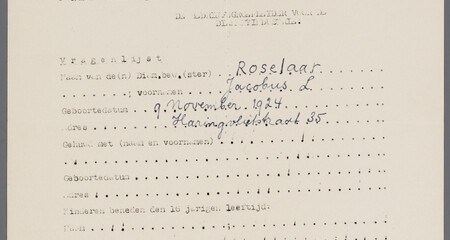 Vragenlijst
Naam van de(n) Diambew.(ster) Roselaar
" " ; voornamen Jacobus L
Geboortedatum 9 November 1924
Adres Haringvlietstraat 35
Gehuwd met (naam en voornamen)
Geboortedatum
Adres
Kinderen beneden den 16 jarigen leeftijd:
Naam